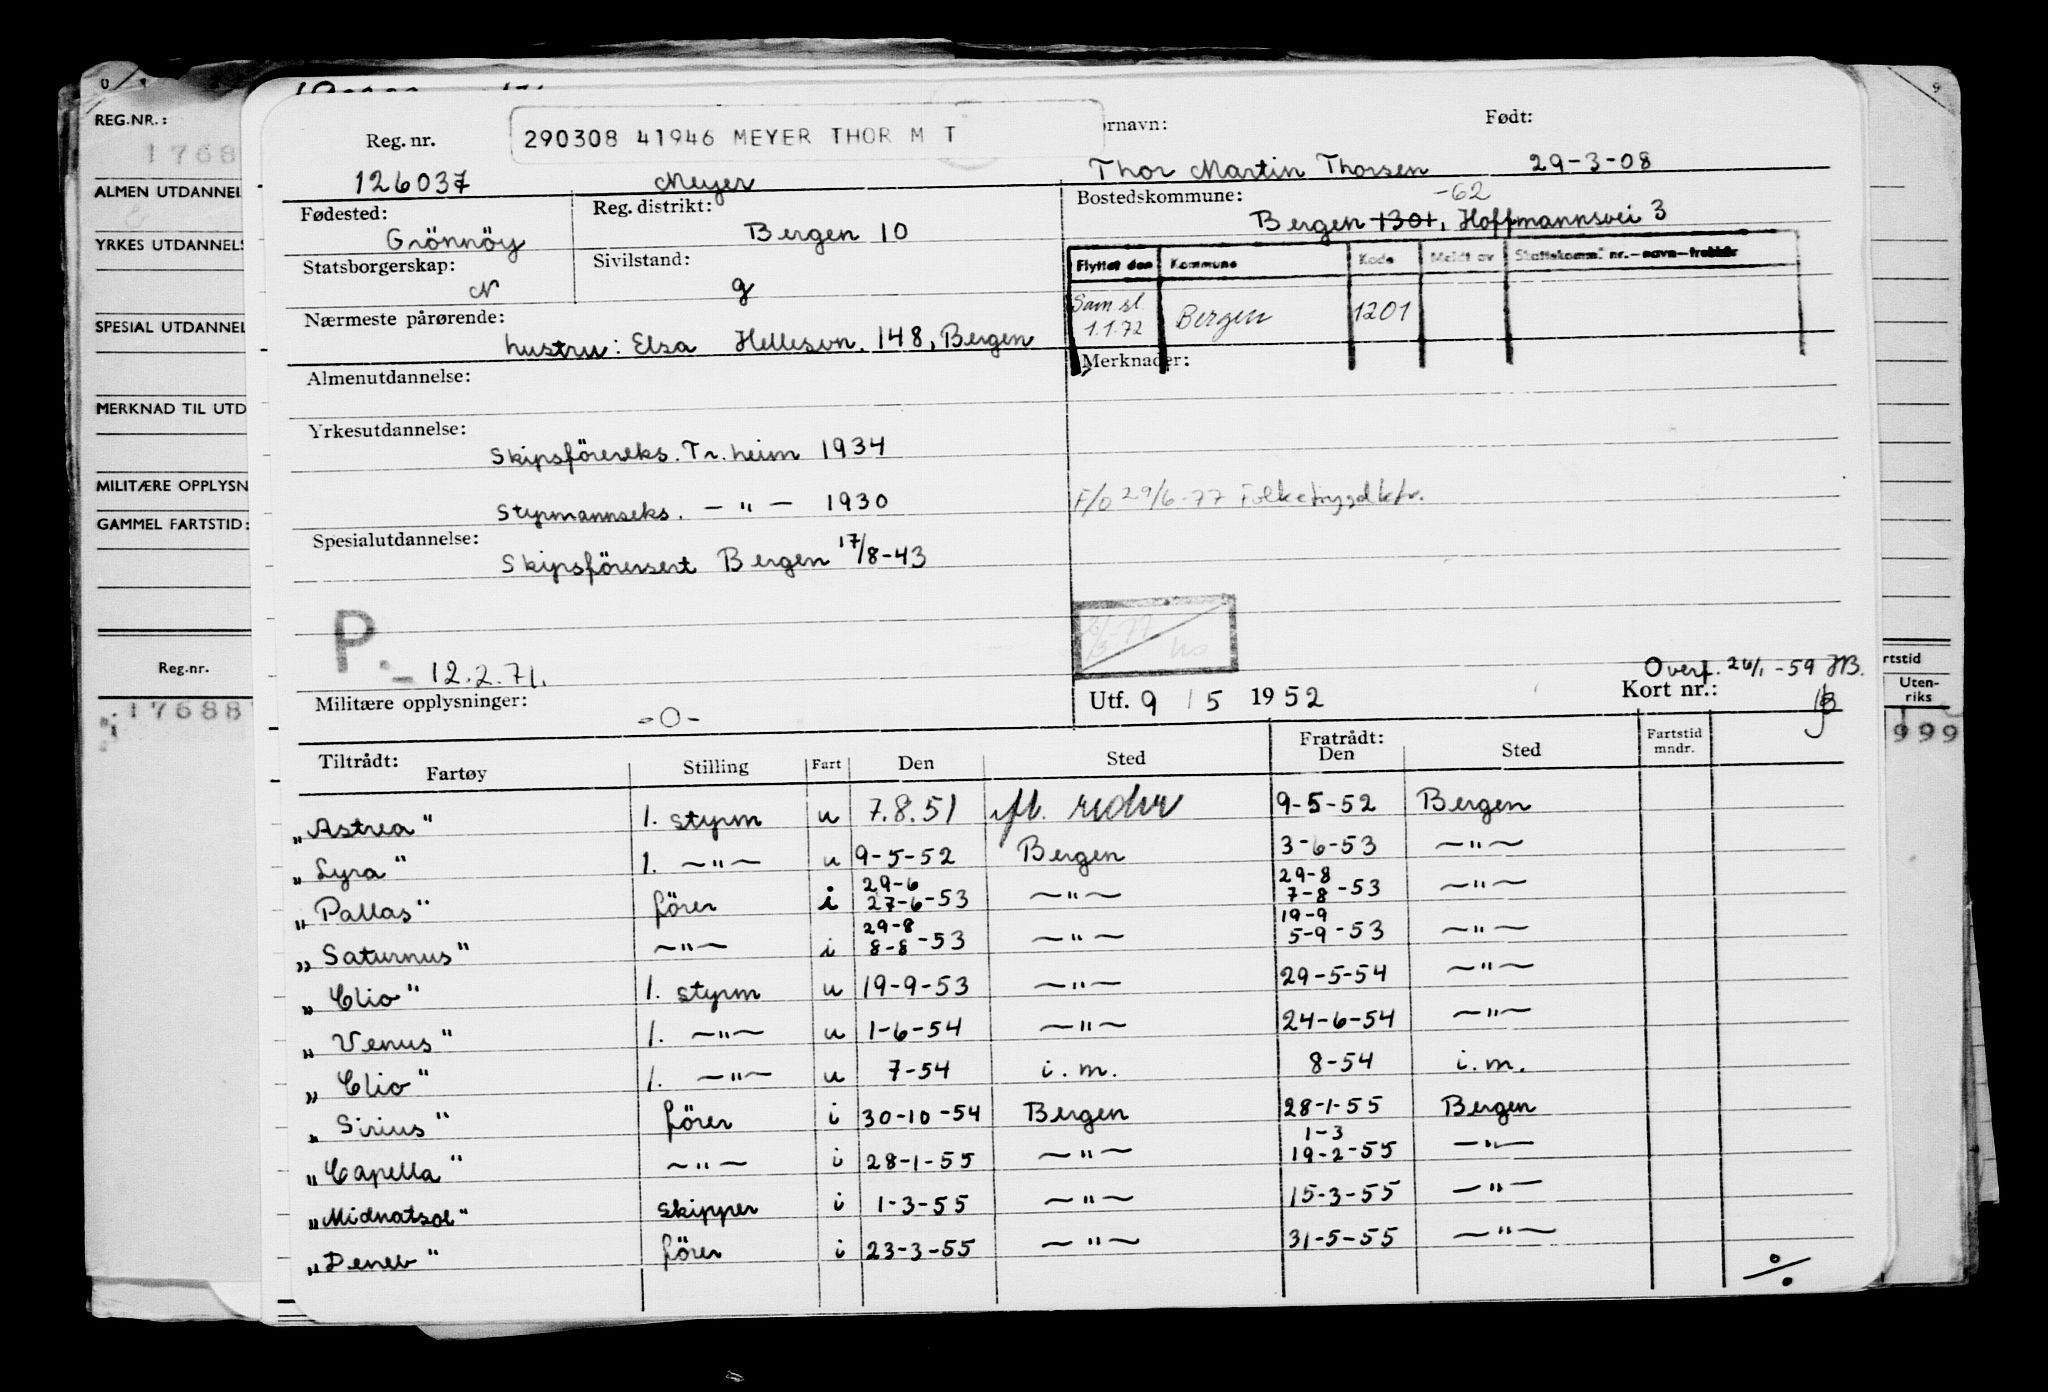 REG.NR.:
17688
ALMEN UTDANNEL
YRKES UTDANNELS
SPESIAL UTDANNEL
MERKNAD TIL UTD
MILITÆRE OPPLYSN
GAMMEL FARTSTID:
Reg.nr.
17688
rtstid
Uten-
riks
999
Reg. nr. 290308 41946 MEYER THOR M T ornavn: Født:
126037 Meyer Thor Martin Thorsen 29-3-08
Fødested: Reg. distrikt: Bostedskommune: -62
Grönnöy Bergen 10 Bergen 1301, Hoffmannsvei 3
Statsborgerskap: Sivilstand: Flyttet den Kommune Kode Meldt av Skattekomm. nr.-navn-trekkår
N g Sam.sl. 1.1.72 Bergen 1201
Nærmeste pårørende:
hustru: Elsa Hellesvn. 148, Bergen
Almenutdannelse: Merknader:
Yrkesutdannelse:
Skipsförereks. Tr.heim 1934
Styrmannseks. — " — 1930 F/O 29/6-77 Folketrygdktr.
Spesialutdannelse:
Skipsförersert Bergen 17/8-43
P.
- 12.2.71.
Overf. 26/1-59 HB.
Militære opplysninger: -0- Utf. 9 / 5 1952 Kort nr.:
Tiltrådt: Fartøy Stilling Fart Den Sted Fratrådt: Den Sted Fartstid mndr.
„Astrea" 1. styrm u 7.8.51 9-5-52 Bergen
„Lyra" 1. —"— u 9-5-52 Bergen 3-6-53 —"—
29-6 29-8
„Pallas" förer i 27-6-53 —"— 7-8-53 —"—
29-8 19-9
„Saturnus" —"— i 8-8-53 —"— 5-9-53 —"—
„Clio" 1. styrm u 19-9-53 —"— 29-5-54 —"—
„Venus" 1. —"— u 1-6-54 —"— 24-6-54 —"—
„Clio" 1. —"— u 7-54 i.m. 8-54 i.m.
„Sirius" förer i 30-10-54 Bergen 28-1-55 Bergen
1-3
„Capella" —"— i 28-1-55 —"— 19-2-55 —"—
„Midnatsol" skipper i 1-3-55 —"— 15-3-55 —"—
„Deneb" förer i 23-3-55 —"— 31-5-55 —"—